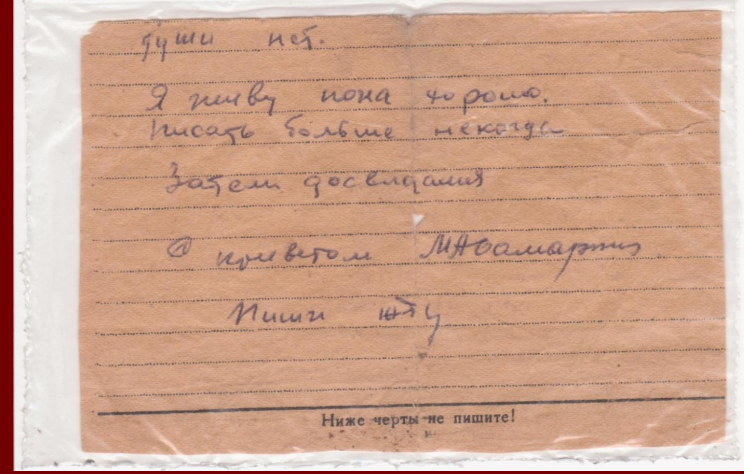 души нет.
Я живу пока хорошо.
писать больше некогда
Затем досвидания
С приветом
Пиши жду
Ниже черты не пишите!